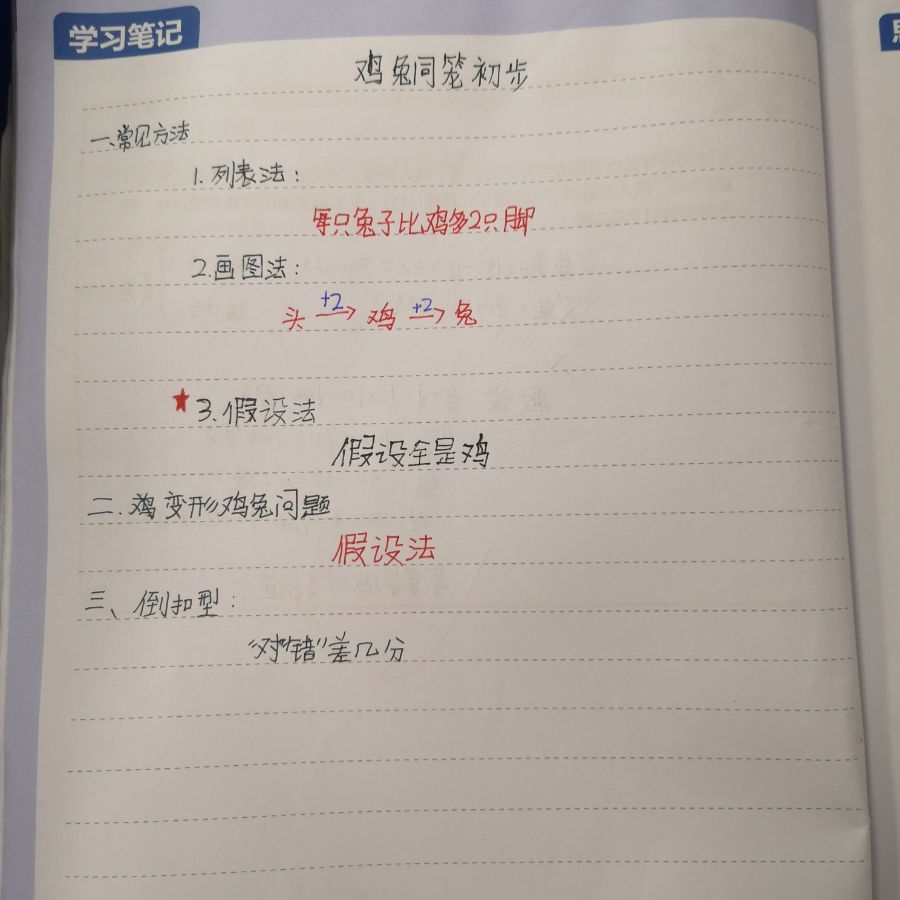 学习笔记
鸡兔同笼初步
一、常见方法
1.列表法:
每只兔子比鸡多2只脚
2.画图法:
头 +2→ 鸡 +2→ 兔
★3.假设法
假设全是鸡
二.鸡变形鸡兔问题
假设法
三、倒扣型:
“对”“错”差几分